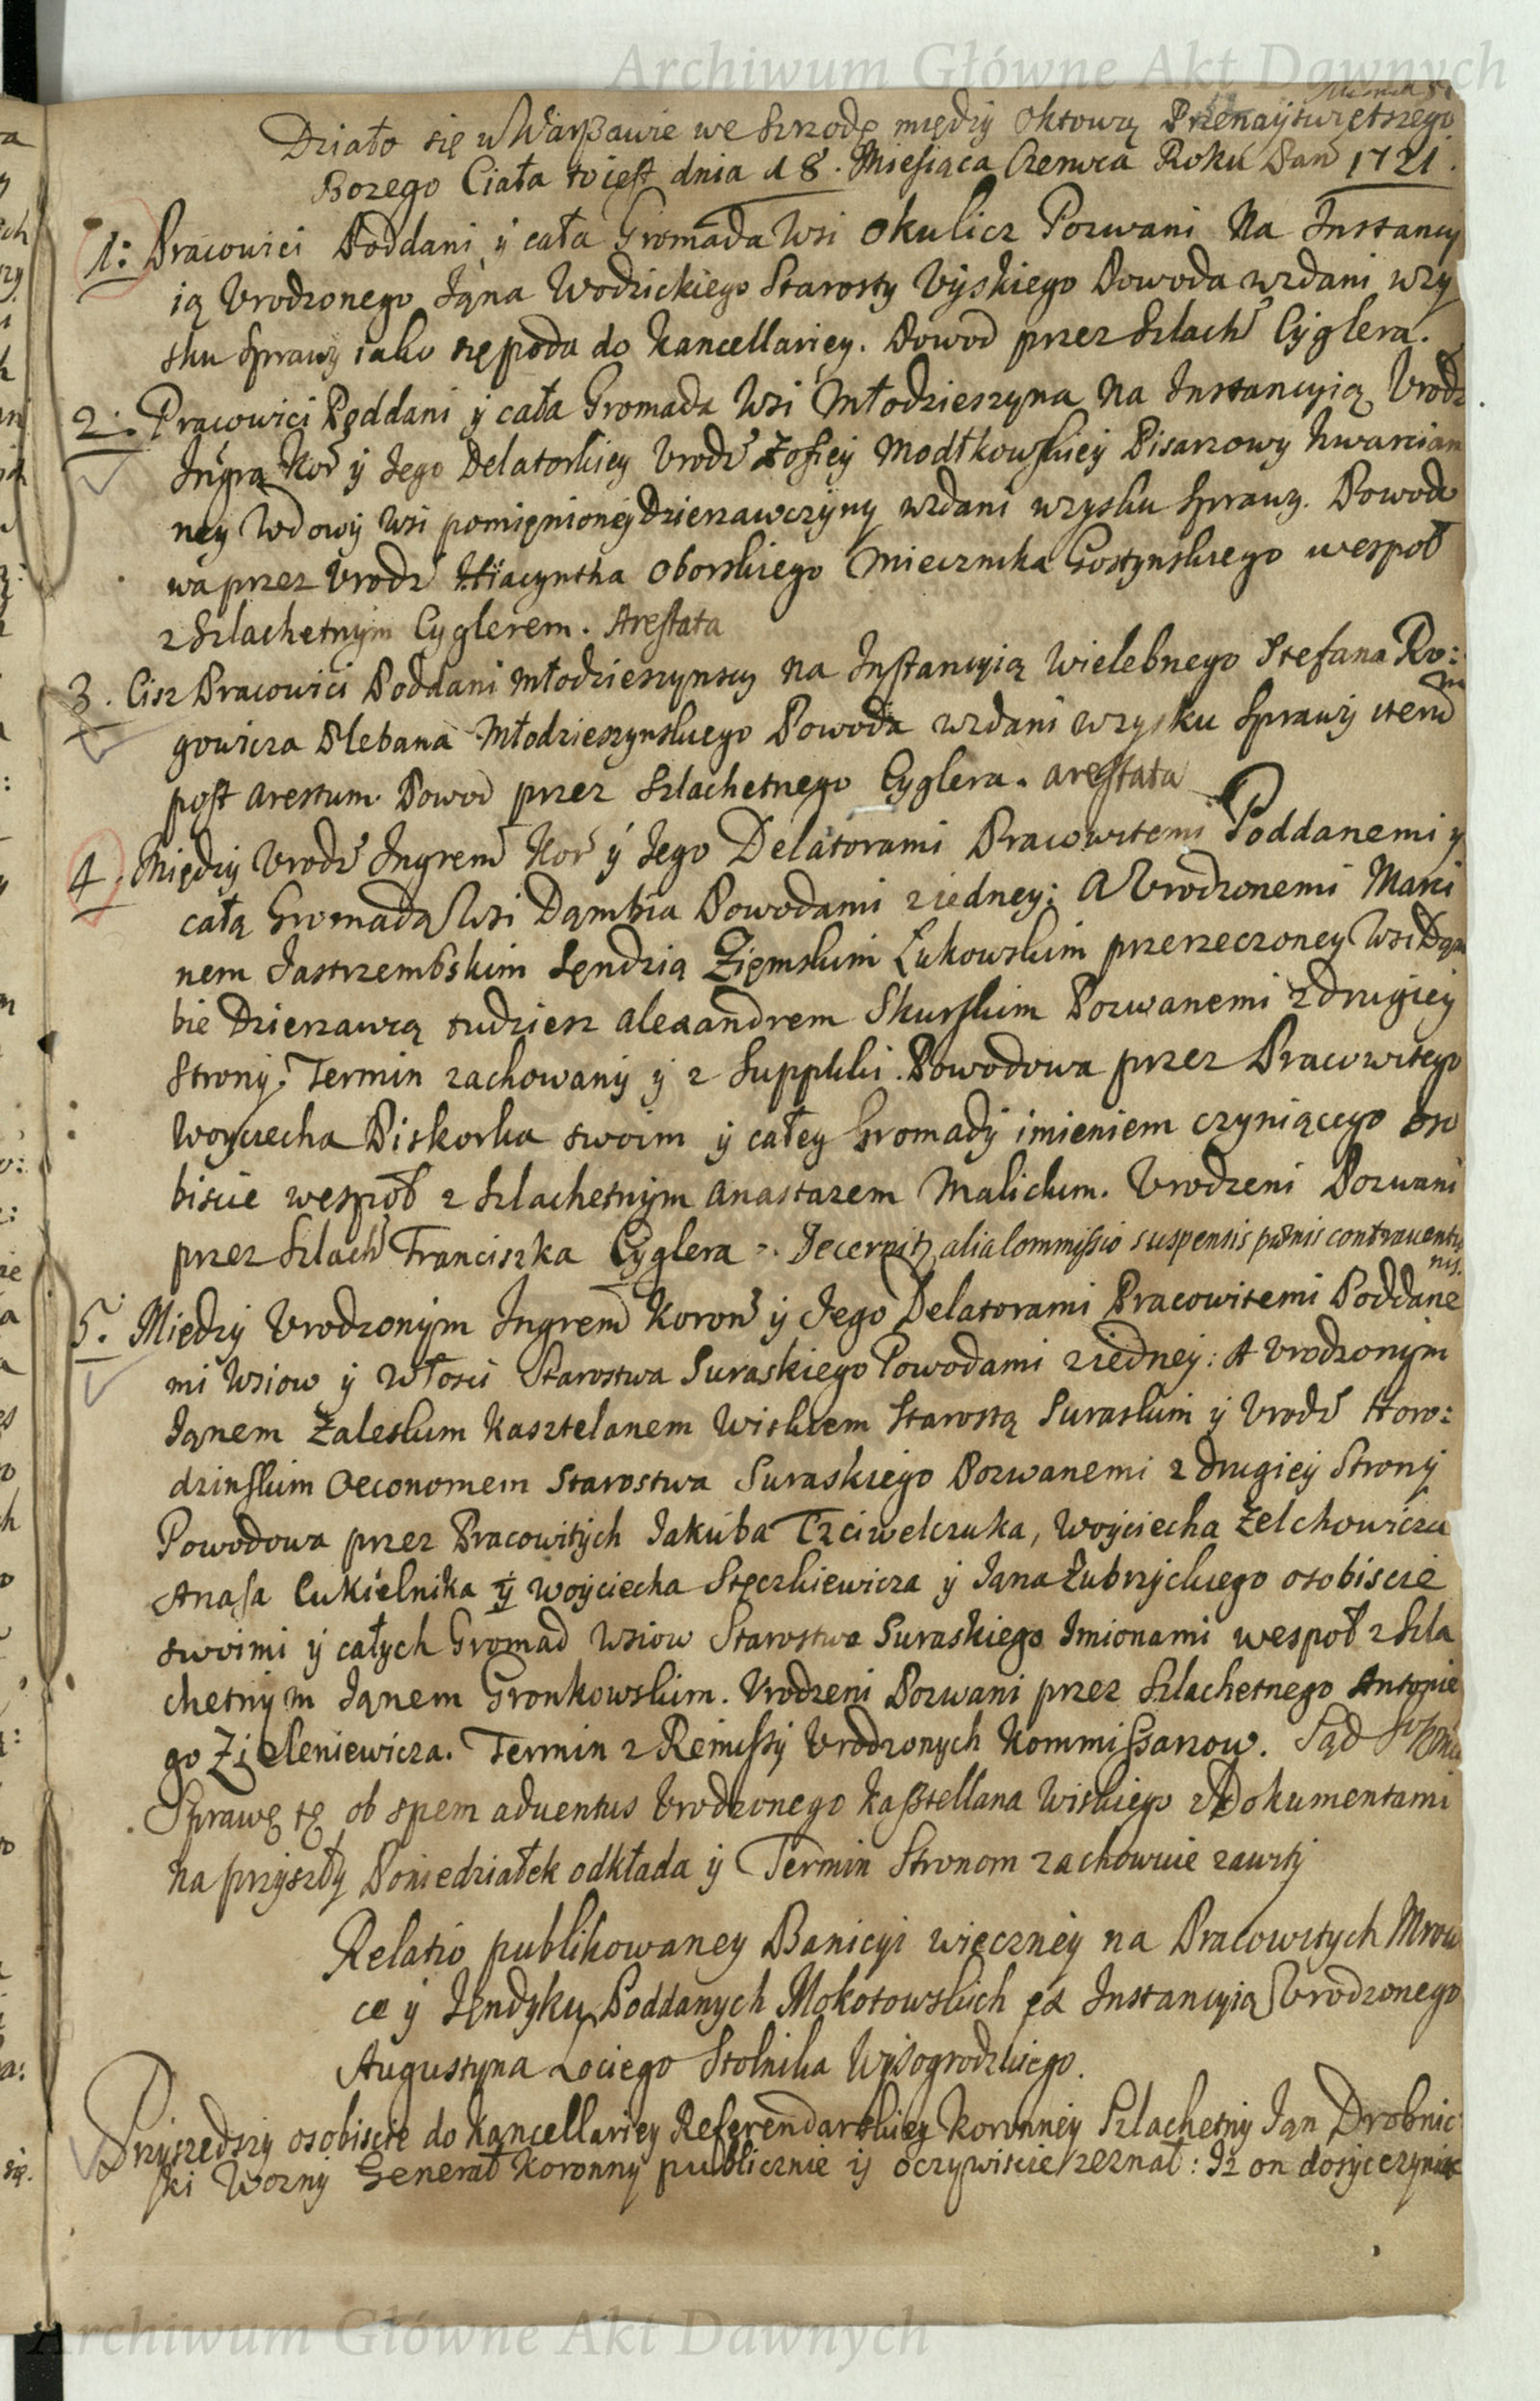 Archiwum Główne Akt Dawnych
Działo się w Warszawie we Szrodę między Oktową Przenayswiętszego
Bozego Ciała to iest dnia 18. Miesiąca Czerwca Roku Pań 1721.
1: Pracowici Poddani y cała Gromada Wsi Okulicz Pozwani Na Instancy
ią Urodzonego Jąna Wodzickiego Starosty Uyskiego Powoda wzdani wzy
sku sprawy iako się poda do Kancellariey. Powod przez Szlach Cyglera.
2. Pracowici Poddani y cała Gromada Wsi Młodzieszyna Na Instancyią Urodz
Ingra Kor y Jego Delatorkiey Urodz Zofiey Modłkowskiey Pisarzowy Kwarcian
ney Wdowy Wsi pomięnioney Dzierzawczyny wzdani wzysku sprawy. Powodo
wa przez Urodz Hiacyntha Oborskiego Miecznika Gostynskiego wespoł
z Szlachetnym Cyglerem. Arestata
3. Cisz Pracowici Poddani Młodzieszynscy Na Instancyią Wielebnego Stefana Ro:
gowicza Plebana Młodzieszynskiego Powoda wzdani wzysku Sprawy item
post arestum. Powod przez Szlachetnego Cyglera. arestata
4. Między Urodz Ingrem Kor y Jego Delatorami Pracowitemi Poddanemi y
całą Gromadą Wsi Dąmbia Powodami z iedney; A Urodzonemi Marci
nem Jastrzembskim Sęndzią Ziemskim Łukowskim przerzeczoney Wsi Dąm
bie Dzierzawcą tudziesz Alexandrem Skurskim Pozwanemi z drugiey
Strony. Termin zachowany y z Supplki. Powodowa przez Pracowitego
Woyciecha Piskorka swoim y całey Gromady imieniem czyniącego oso
biscie wespoł z Szlachetnym Anastazem Malickim. Urodzeni Pozwani
przez Szlach Franciszka Cyglera. Decernitr alia Commissio suspensis pænis contraventio
nis.
5. Między Urodzonym Ingrem Koron y Jego Delatorami Pracowitemi Poddane
mi Wsiow y Włosci Starostwa Suraskiego Powodami z iedney: A Urodzonym
Jąnem Zaleskim Kasztelanem Wiskiem Starostą Suraskim y Urodz Horo:
dzinskim Oeconomem Starostwa Suraskiego Pozwanemi z drugiey Strony
Powodowa przez Pracowitych Jakuba Trciwelczuka, Woyciecha Zelchowicza
Anasa Cukielnika y Woyciecha Stęczkiewicza y Jana Zubrzyckiego osobiscie
swoimi y całych Gromad Wsiow Starostwa Suraskiego Imionami wespoł z Szla
chetnym Jąnem Gronkowskim. Urodzeni Pozwani przez Szlachetnego Antonie
go Zieleniewicza. Termin z Remissy Urodzonych Kommissarzow. Sąd
Sprawę tę ob spem adventus Urodzonego Kasztellana Wiskiego z Dokumentami
na przyszły Poniedziałek odkłada y Termin Stronom zachowuie zawity
Relatio publikowaney Banicyi wieczney na Pracowitych Mrow
ce y Jęndyku Poddanych Mokotowskich ex Instancyią Urodzonego
Augustyna Lociego Stolnika Wyszogrodzkiego.
Przyszedszy osobiscie do Kancellariey Referendarskiey Koronney Szlachetny Ian Drobnic
ki Wozny Generał Koronny publicznie y oczywiscie zeznał: Iz on dosyc czyniąc
Archiwum Główne Akt Dawnych